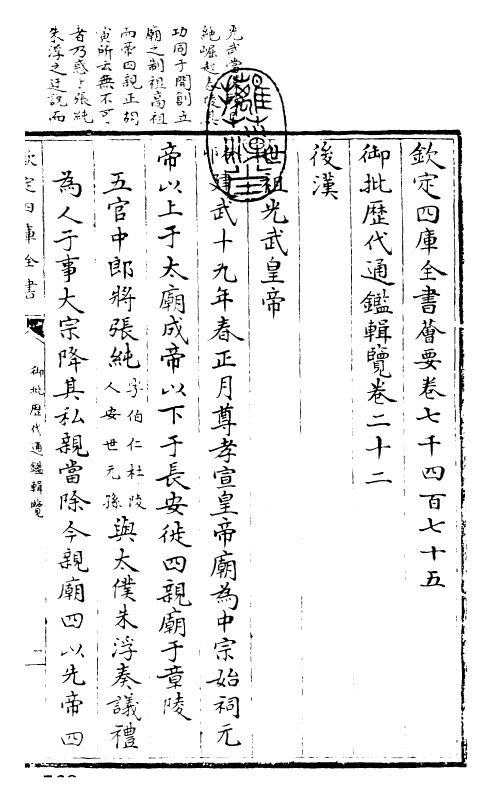 欽定四庫全書薈要卷七千四百七十五
御批歴代通鑑輯覽卷二十二
後漢
世祖光武皇帝
建武十九年春正月尊孝宣皇帝廟為中宗始祠元
帝以上于太廟成帝以下于長安徙四親廟于章陵
五官中郎將張純字伯仁杜陵人安世元孫與太僕朱浮奏議禮
為人子事大宗降其私親當除今親廟四以先帝四
光武當
絶崛起
功同于開創立
廟之制祖高祖
而帝四親正胡
寅所云無不可
者乃惑于張純
朱浮之迂說而
欽定四庫全書
御批歷代通鑑輯覽